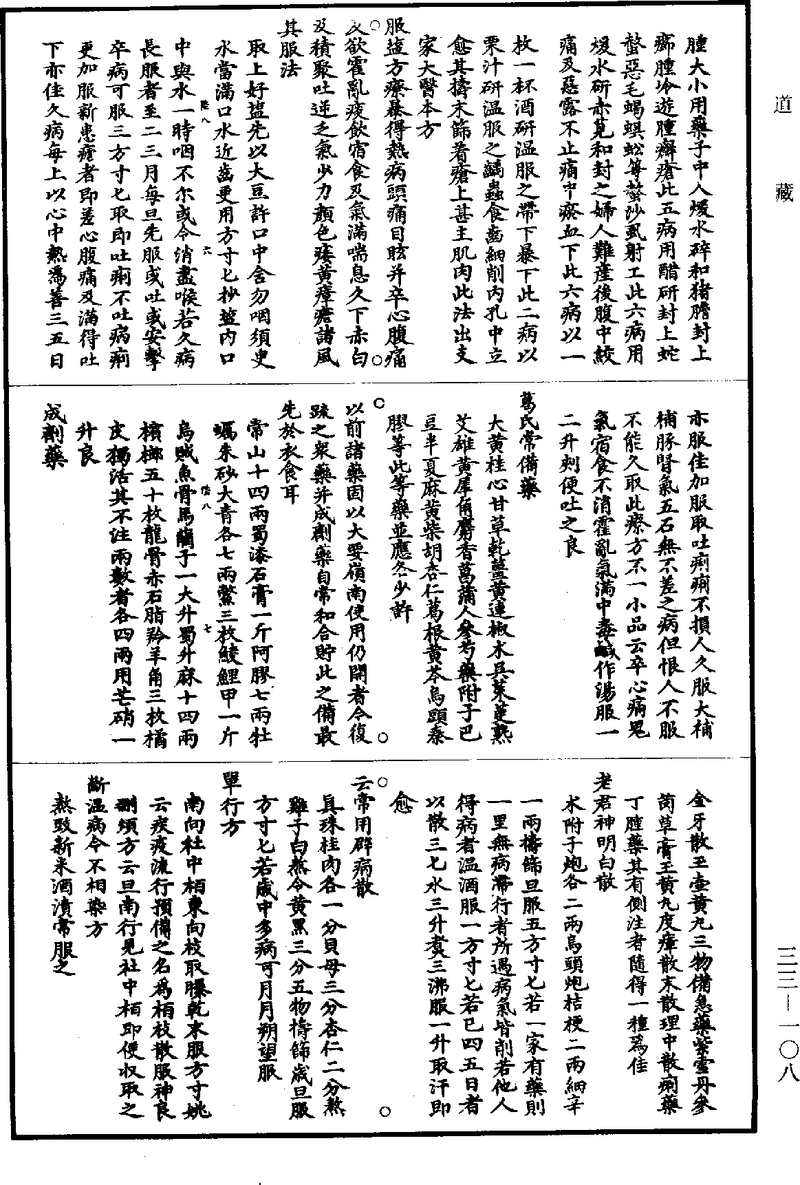 道藏
腫大小用藥子中人煖水碎和猪膽封上
癤腫冷遊腫癬瘡此五病用醋研封上蛇
螫惡毛蝎蜈蚣等螫沙虱射工此六病用
煖水研赤莧和封之婦人難產後腹中絞
痛及惡露不止痛中瘀血下此六病以一
枚一杯酒研溫服之帶下暴下此二病以
栗汁研溫服之䘌蟲食齒細削內孔中立
愈其擣末篩着瘡上甚主肌肉此法出支
家大醫本方
服鹽方療暴得熱病頭痛目眩并卒心腹痛
及欲霍亂痰飲宿食及氣滿喘息久下赤白
及積聚吐逆乏氣少力顏色痿黃瘴瘧諸風
其服法
取上好鹽先以大豆許口中含勿咽須臾
水當滿口水近齒更用方寸匕抄鹽內口
陸八　六
中與水一時咽不尔或令消盡喉若久病
長服者至二三月每旦先服或吐或安擊
卒病可服三方寸匕取即吐痢不吐病痢
更加服新患瘧者即差心腹痛及滿得吐
下亦佳久病每上以心中熱爲善三五日
亦服佳加服取吐痢痢不損人久服大補
補豚腎氣五石無不差之病但恨人不服
不能久取此療方不一小品云卒心痛鬼
氣宿食不消霍亂氣滿中毒鹹作湯服一
二升刺便吐之良
葛氏常備藥
大黃桂心甘草乾薑黃連椒木具茱萸熟
艾雄黃犀角麝香菖蒲人參芍藥附子巴
豆半夏麻黃柴胡杏仁葛根黃芩烏頭秦
膠等此等藥並應各少許
以前諸藥固以大要嶺南使用仍開者今復
疏之衆藥并成劑藥自常和合貯此之備最
先於衣食耳
常山十四兩蜀漆石膏一斤阿膠七兩牡
蠣朱砂大青各七兩鱉三枚鯪鯉甲一斤
陸八　七
烏賊魚骨馬藺子一大升蜀升麻十四兩
檳榔五十枚龍骨赤石脂羚羊角三枚橘
皮獨活其不注兩數者各四兩用芒硝一
升良
成劑藥
金牙散玉壺黃丸三物備急藥紫靈丹參
茵草膏玉黃丸度瘴散末散理中散痢藥
丁腫藥其有側注者隨得一種爲佳
老君神明白散
朮附子炮各二兩烏頭炮桔梗二兩細辛
一兩擣篩旦服五方寸匕若一家有藥則
一里無病帶行者所遇病氣皆削若他人
得病者溫酒服一方寸匕若已四五日者
以散三匕水三升煑三沸服一升取汗即
愈
云常用辟病散
真珠桂肉各一分貝母三分杏仁二分熬
雞子白熬令黃黑三分五物擣篩歲旦服
方寸匕若歲中多病可月月朔望服
單行方
南向社中栢東向枝取曝乾末服方寸姚
云疾疫流行預備之名爲栢枝散服神良
刪煩方云旦南行見社中栢即便收取之
斷溫病令不相染方
熬豉新米酒漬常服之
三三—一〇八